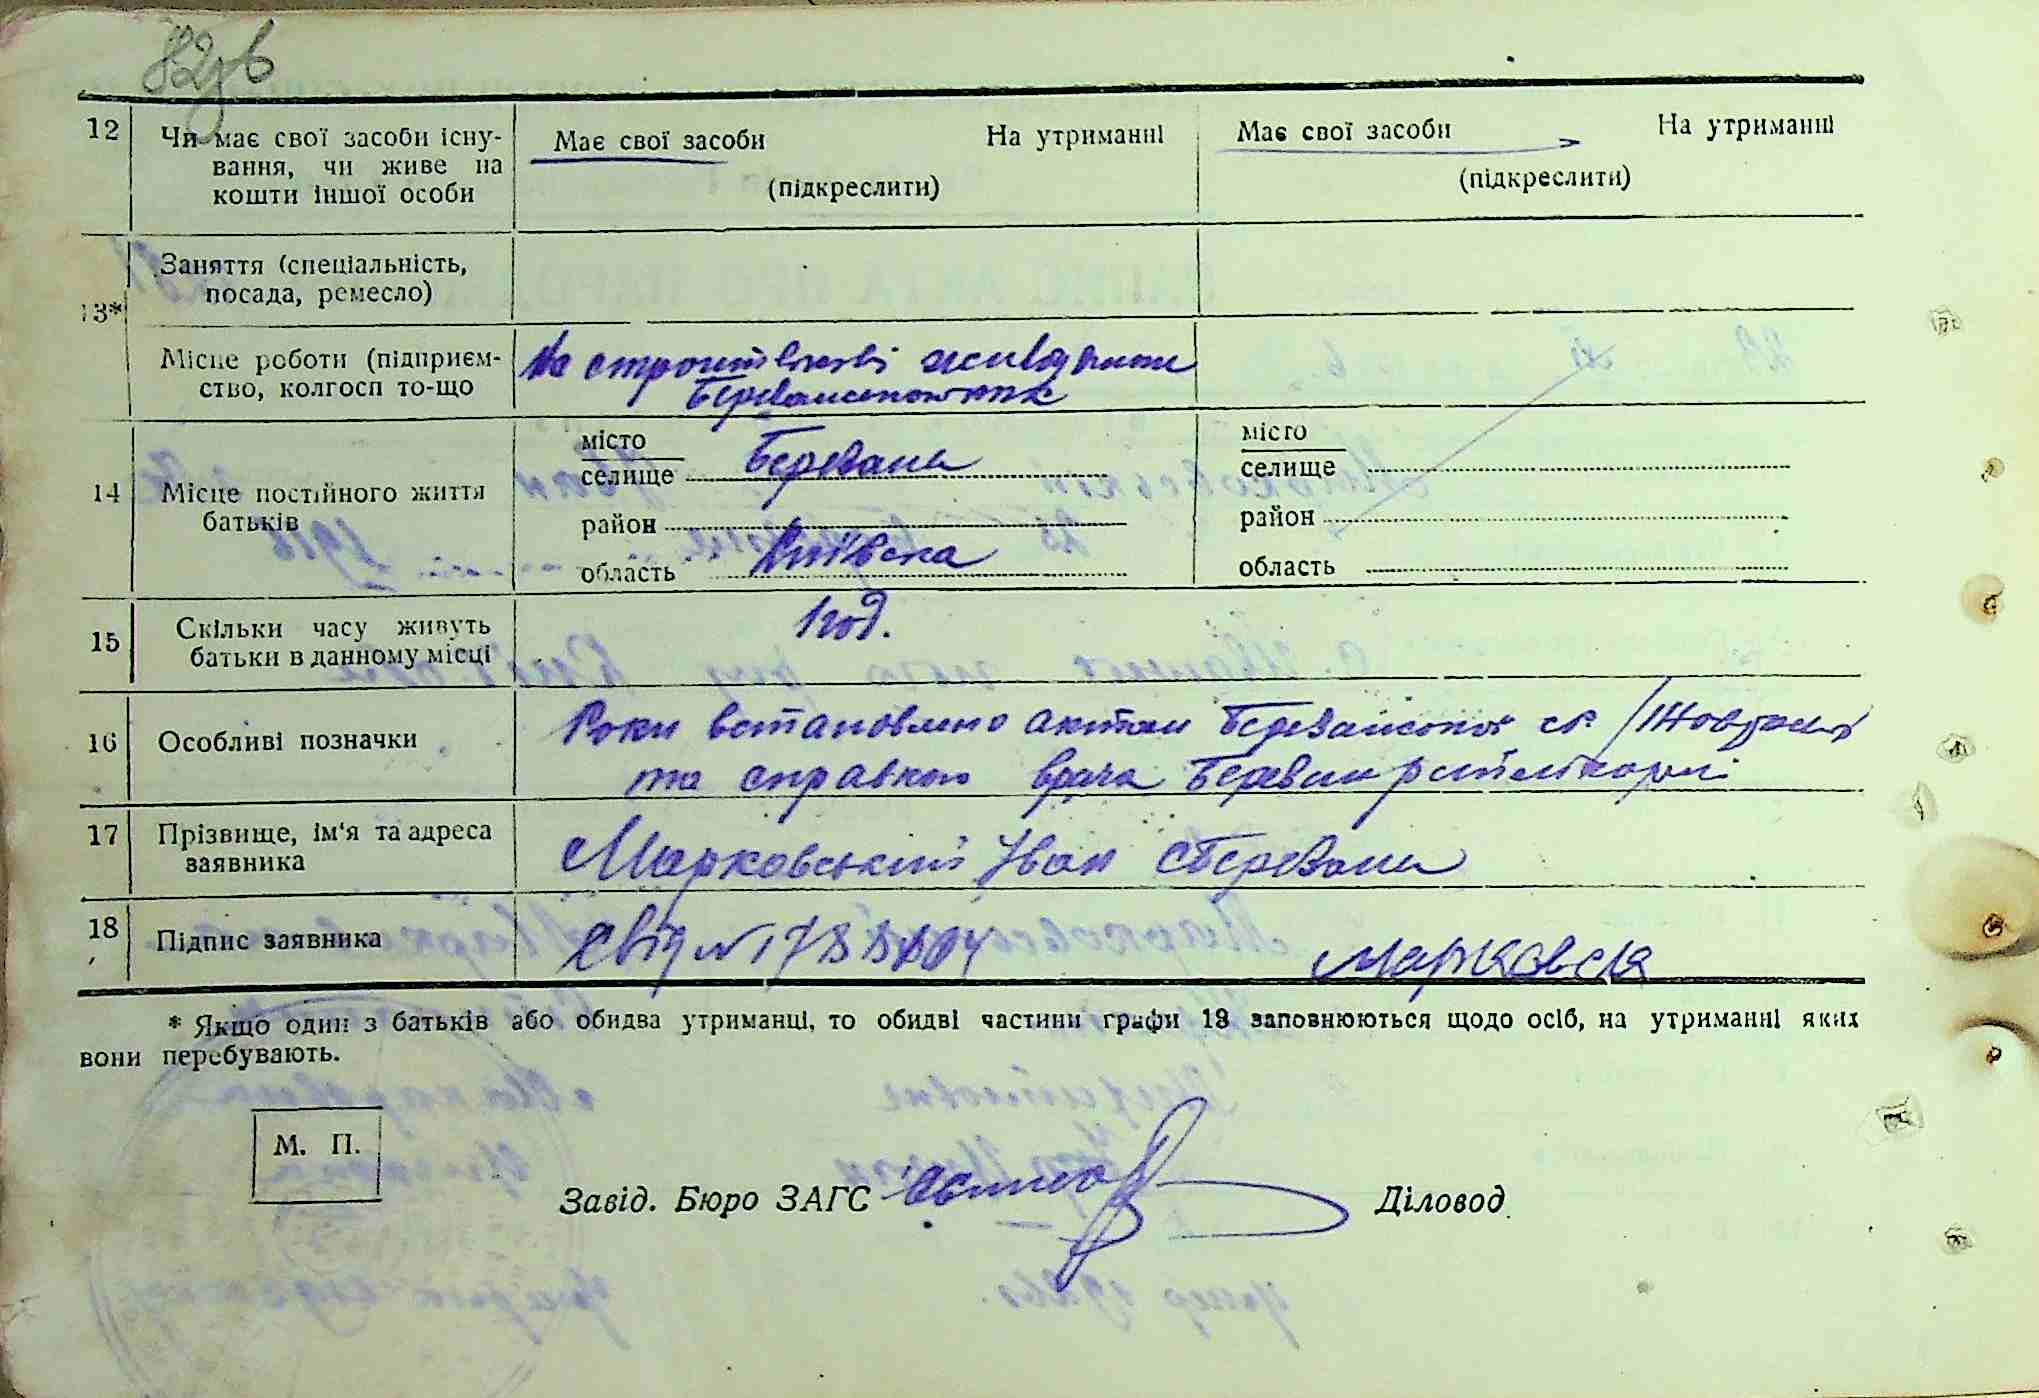 82зв
12
Чи має свої засоби існу-
вання, чи живе на
кошти іншої особи
Має свої засоби На утриманні
(підкреслити)
Має свої засоби На утриманні
(підкреслити)
13*
Заняття (спеціальність,
посада, ремесло)
Місце роботи (підприєм-
ство, колгосп то-що
На
14
Місце постійного життя
батьків
місто
селище Березань
район
область Київська
місто
селище
район
область
15
Скільки часу живуть
батьки в данному місці
1 год.
16
Особливі позначки
Роки встановлено актом Березанської
та справкою врача
17
Прізвище, ім'я та адреса
заявника
Марковський Іван с Березань
18
Підпис заявника
Свід №
Марковска
* Якщо один з батьків або обидва утриманці, то обидві частини графи 13 заповнюються щодо осіб, на утриманні яких
вони перебувають.
М. П.
Завід. Бюро ЗАГС
Діловод